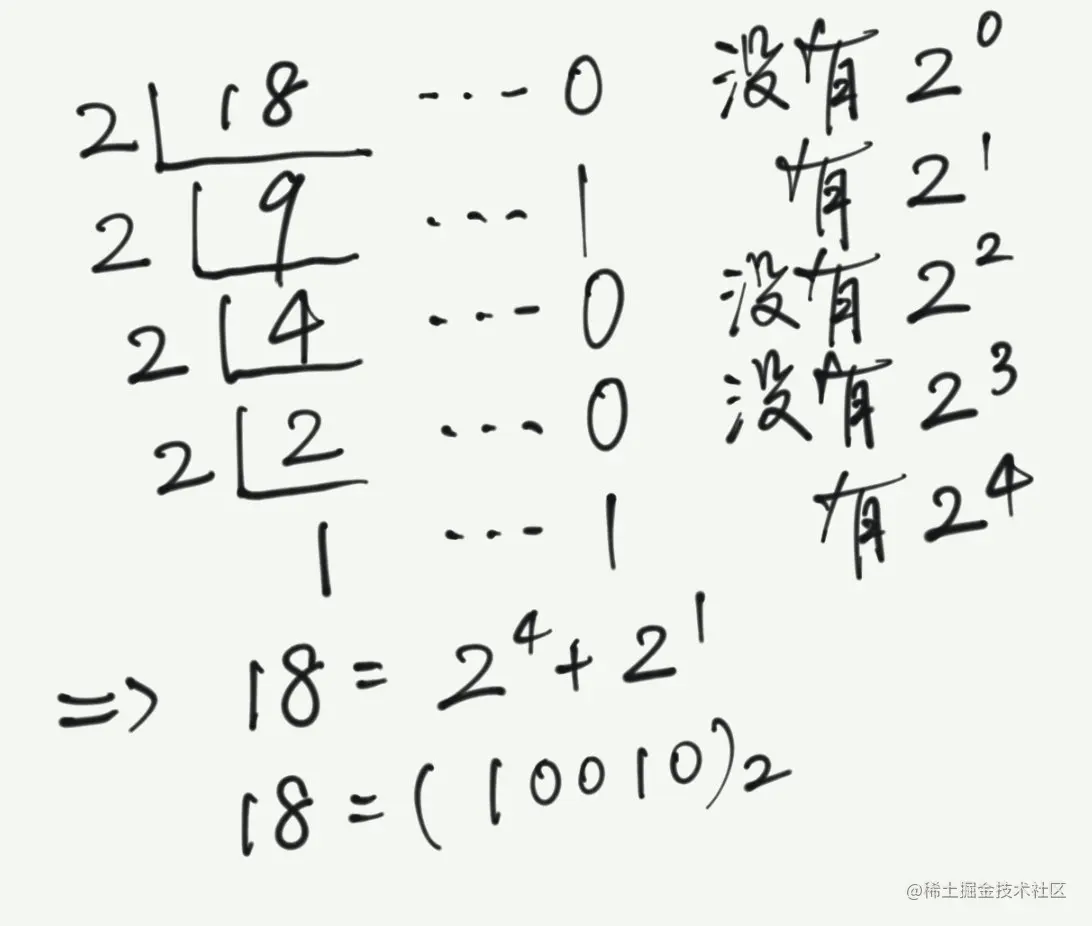 2 18 --- 0 没有 2^0
2 9 --- 1 有 2^1
2 4 --- 0 没有 2^2
2 2 --- 0 没有 2^3
1 --- 1 有 2^4
=> 18 = 2^4 + 2^1
18 = (10010)₂
@稀土掘金技术社区